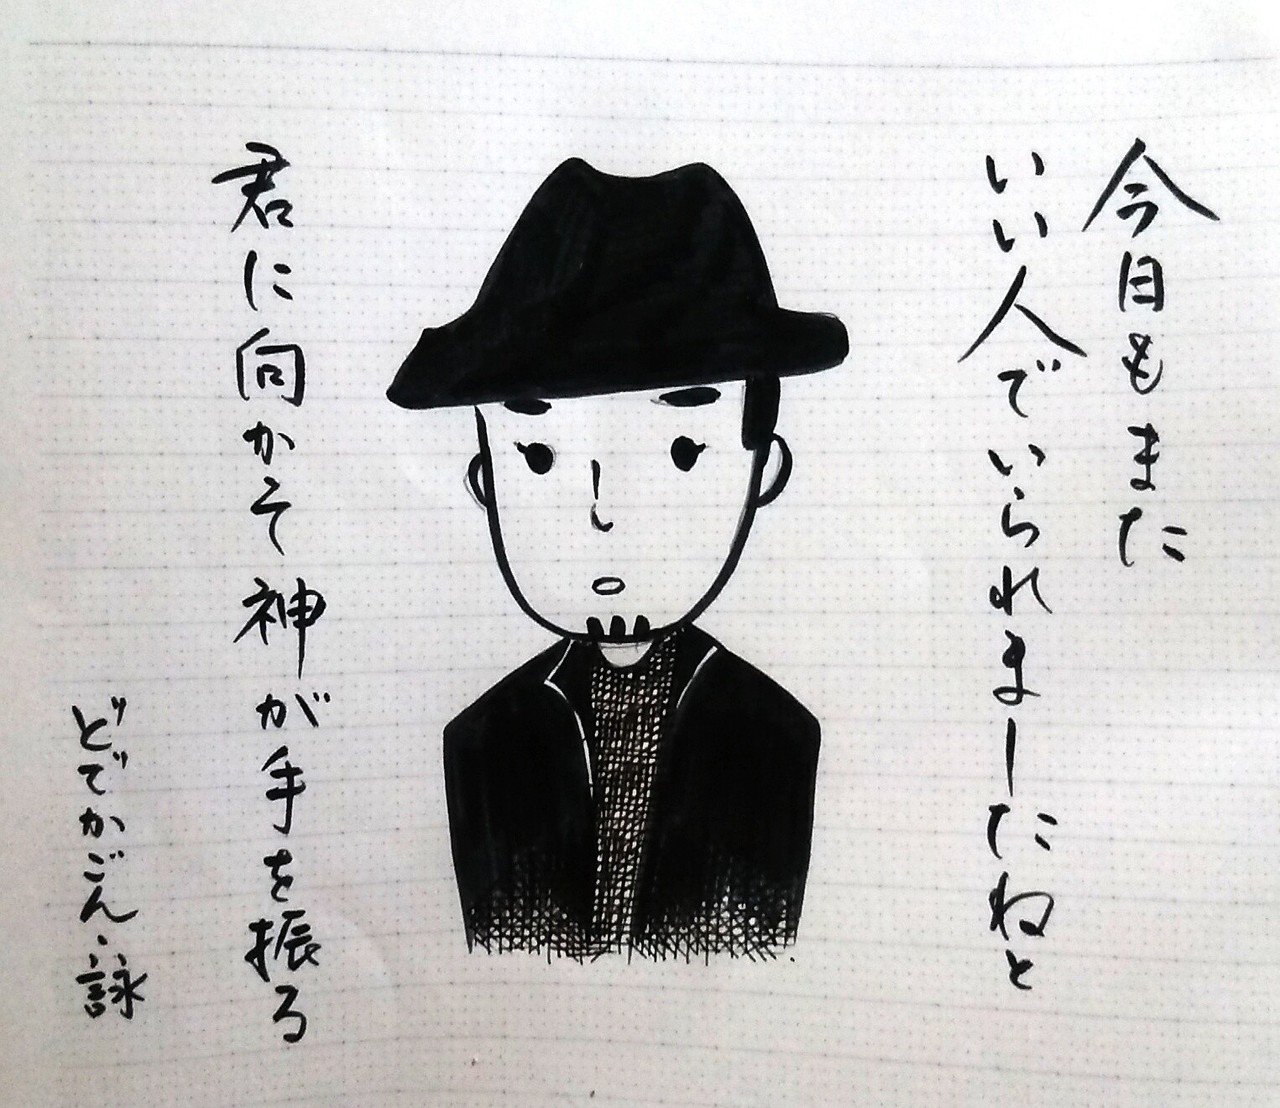 今日もまた
いい人でいられましたねと
君に向かそ神が手を振る
どでかごん・詠